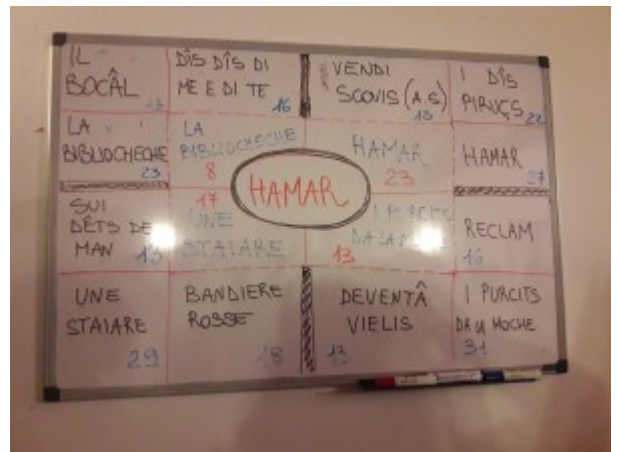 IL
BOCÂL
DÎS DÎS DI
ME E DI TE
16
VENDI
SCOVIS (A S)
13
I DÎS
PIRUÇS
22
LA
BIBLIOCHECHE
23
LA
BIBLIOCHECHE
8
HAMAR
23
HAMAR
27
HAMAR
SUI
DÊTS DE
MAN
13
17
UNE
STAIARE
I PURCITS
13
RECLAM
16
UNE
STAIARE
29
BANDIERE
ROSSE
18
DEVENTÂ
VIELIS
13
I PURCITS
DA LA MOCHE
31